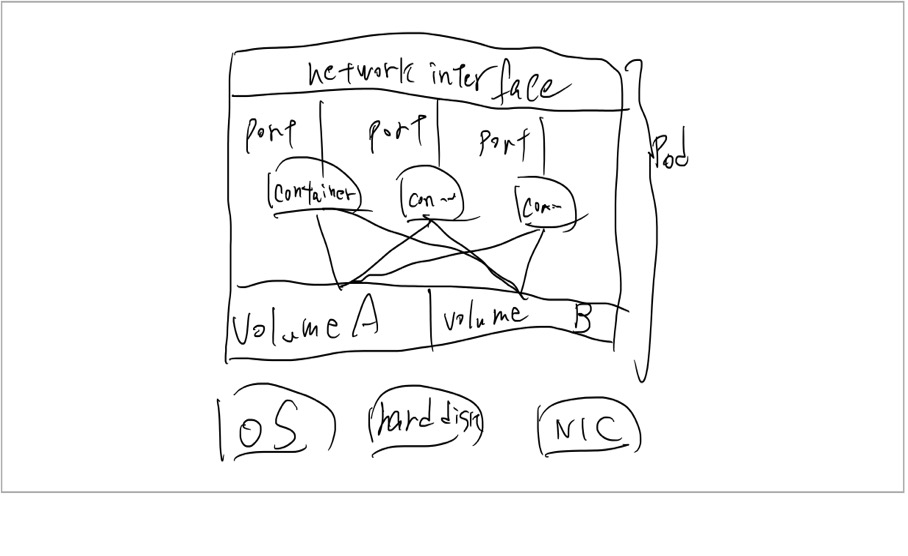 network interface
port port port
Pod
container con~ con~
Volume A volume B
OS hard disk NIC